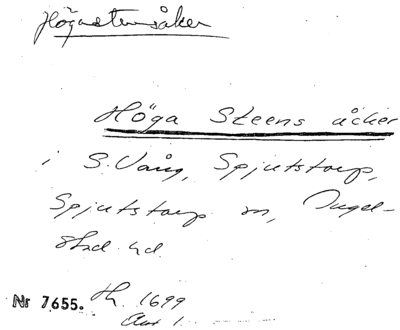 Högastensåker
Höga Steens åcker
i S. Vång, Spjutstorp,
Spjutstorp sn, Ingel-
stad hd.
Nr 7655. Ah. 1699
Akt 1.